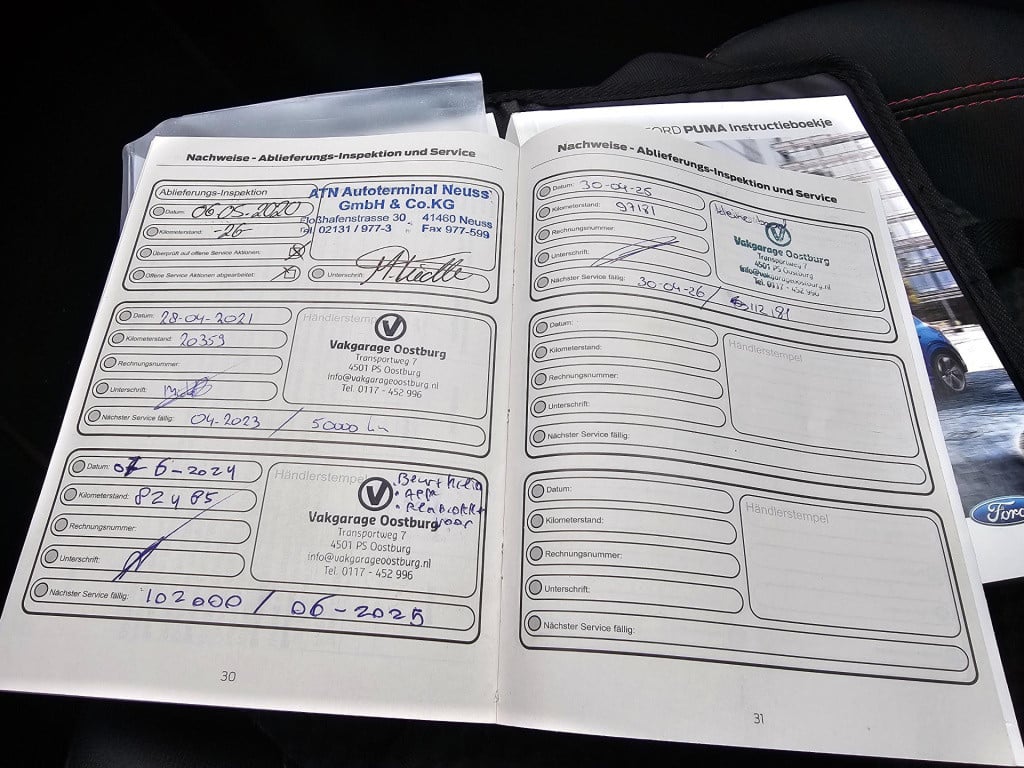 Nachweise - Ablieferungs-Inspektion und Service
Ablieferungs-Inspektion
ATN Autoterminal Neuss
GmbH & Co.KG
Floßhafenstrasse 30 41460 Neuss
Tel. 02131 / 977-3 Fax 977-599
Datum: 06-05-2020
Kilometerstand: -26-
Überprüft auf offene Service Aktionen:
Offene Service Aktionen abgearbeitet:
Unterschrift:
Datum: 28-04-2021
Kilometerstand: 20359
Rechnungsnummer:
Unterschrift:
Nächster Service fällig: 04-2023 / 50000 km
Händlerstempel
Vakgarage Oostburg
Transportweg 7
4501 PS Oostburg
info@vakgarageoostburg.nl
Tel. 0117 - 452 996
Datum: 6-2024
Kilometerstand: 82485
Rechnungsnummer:
Unterschrift:
Nächster Service fällig: 102000 / 06-2025
Händlerstempel
• APK
voor
Vakgarage Oostburg
Transportweg 7
4501 PS Oostburg
info@vakgarageoostburg.nl
Tel. 0117 - 452 996
30
FORD PUMA Instructieboekje
Nachweise - Ablieferungs-Inspektion und Service
Datum: 30-04-25
Kilometerstand: 97181
Rechnungsnummer:
Unterschrift:
Nächster Service fällig: 30-04-26 / 112.181
kleine
Vakgarage Oostburg
Transportweg 7
4501 PS Oostburg
info@vakgarageoostburg.nl
Tel. 0117 - 452 996
Datum:
Kilometerstand:
Rechnungsnummer:
Unterschrift:
Nächster Service fällig:
Händlerstempel
Datum:
Kilometerstand:
Rechnungsnummer:
Unterschrift:
Nächster Service fällig:
Händlerstempel
31
Ford